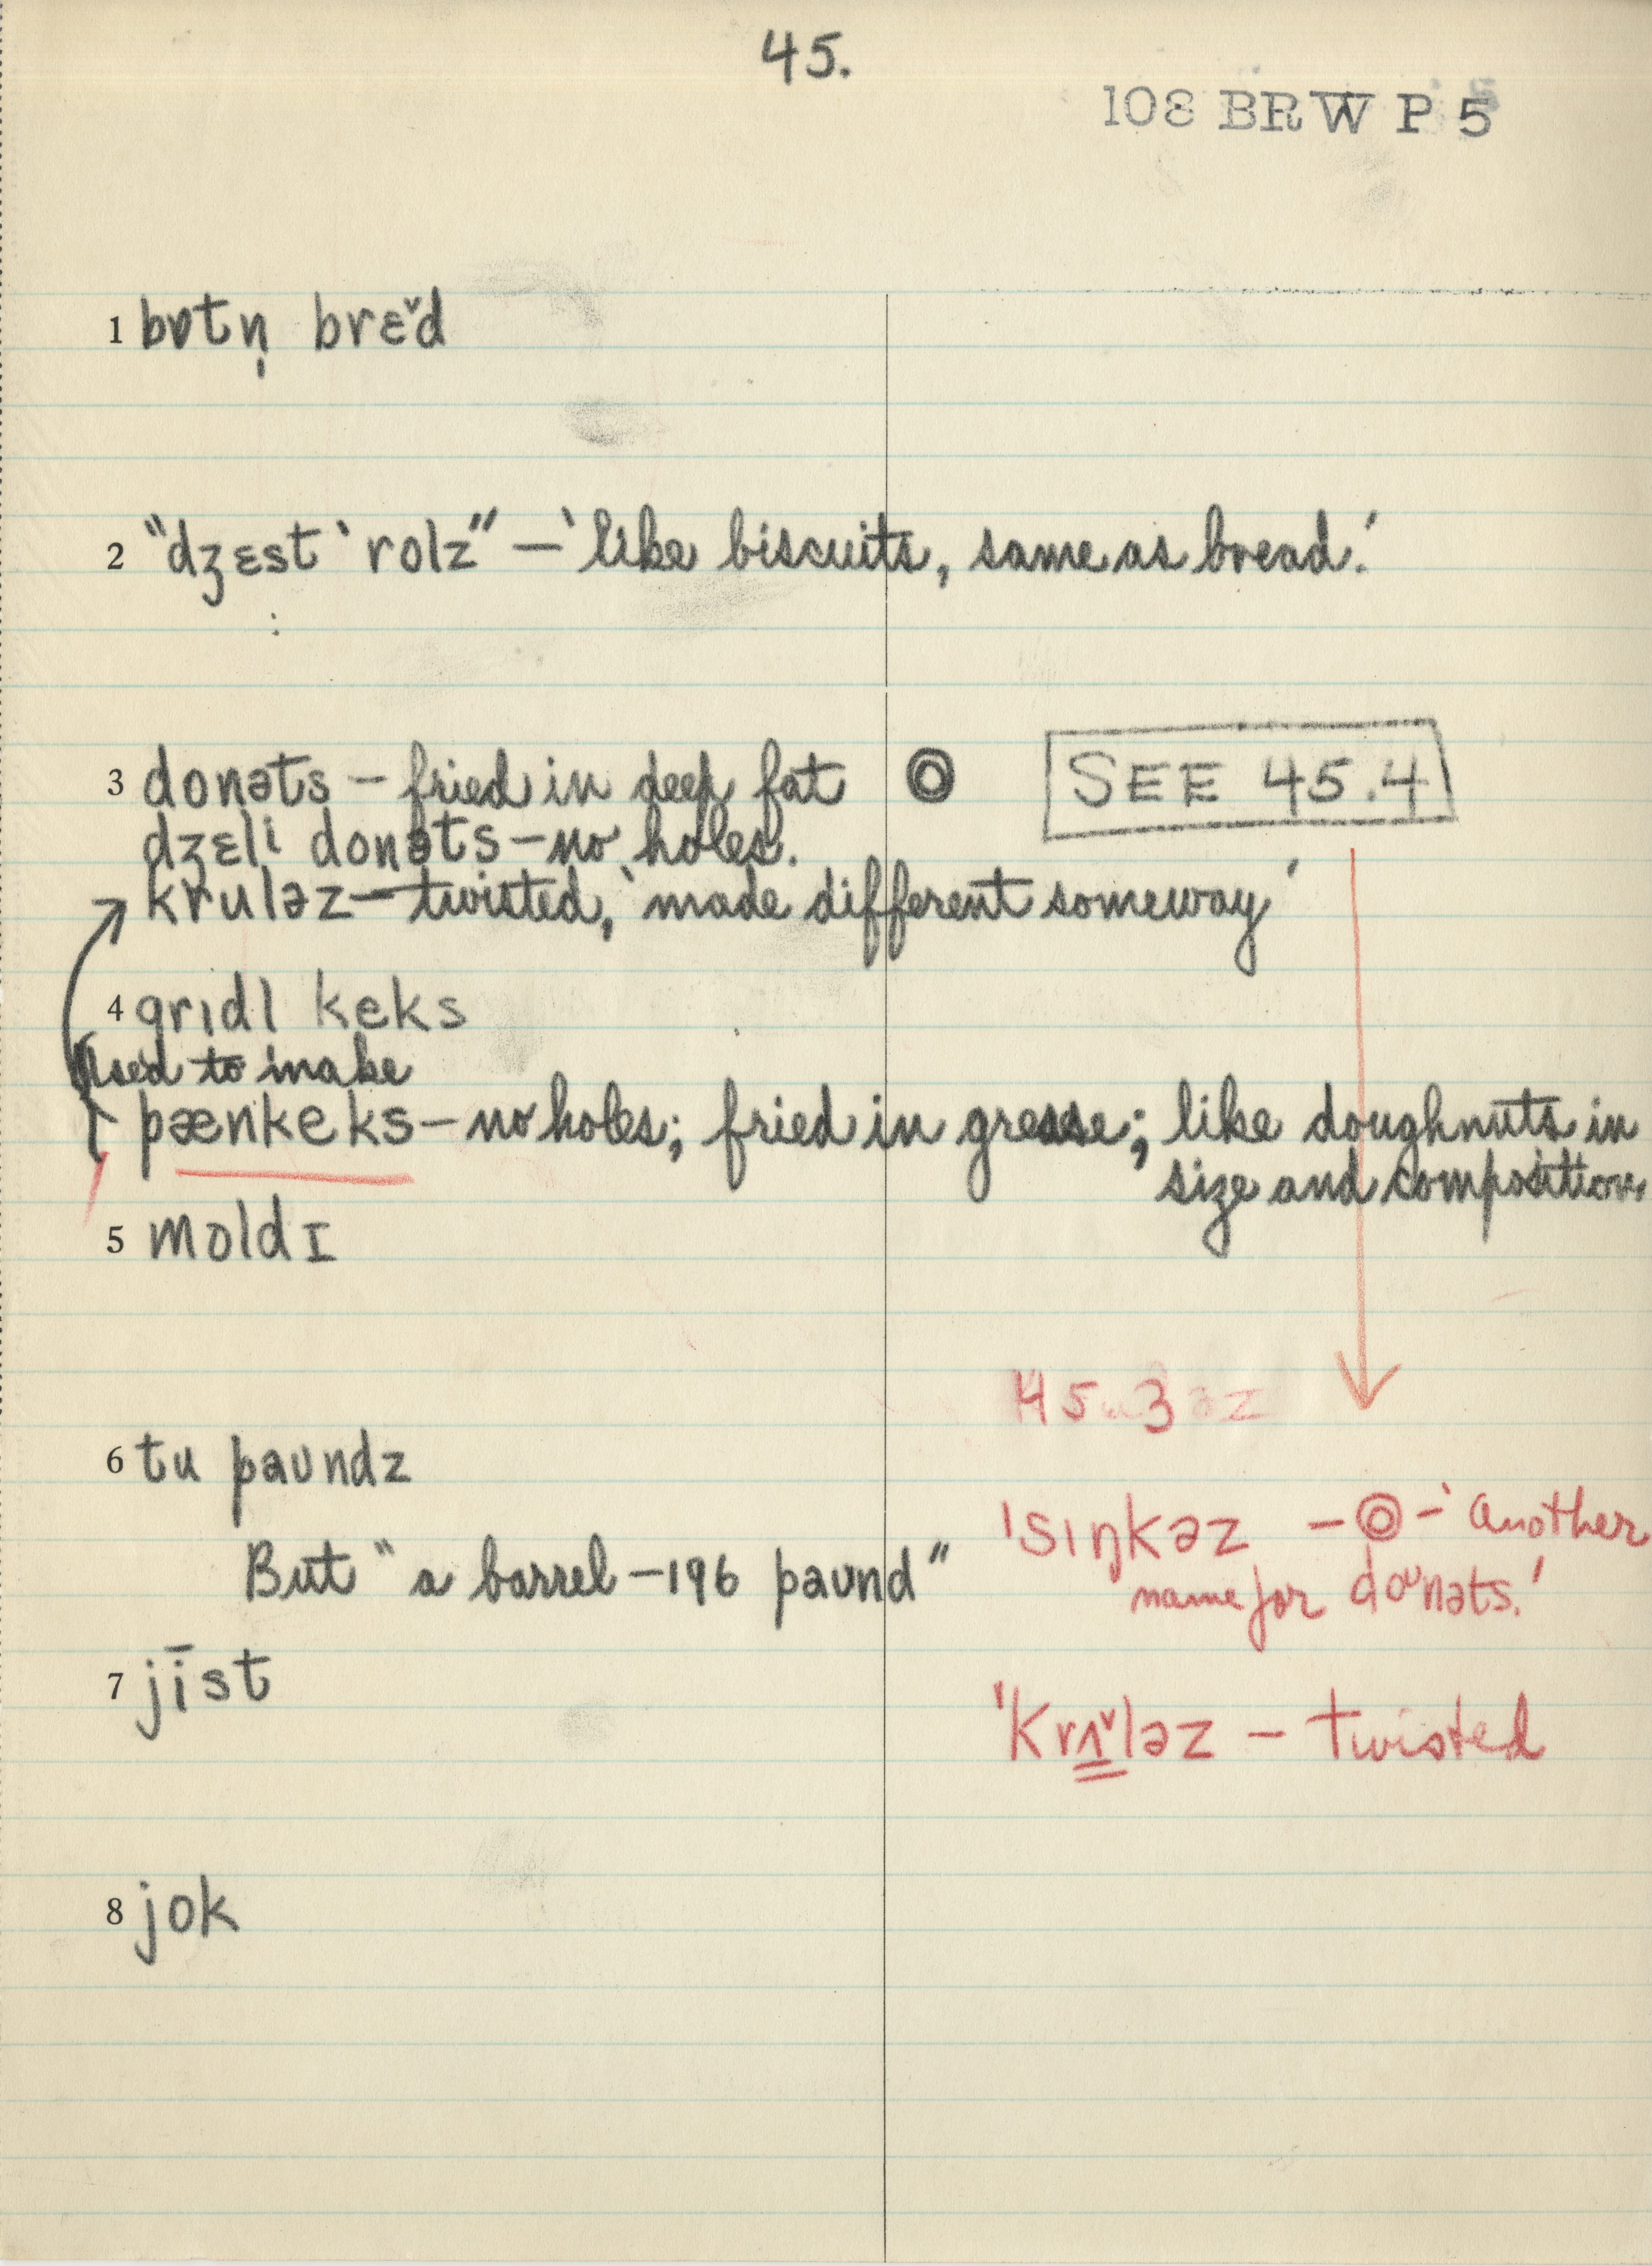 45.
108 BRW P 5
1 bɒtṇ brɛ̌d
2 "dʒɛst ˈrolz" – 'like biscuits, same as bread.'
3 donəts – fried in deep fat ◎ SEE 45.4
dʒɛli donəts – no holes.
kruləz – twisted, 'made different someway'
4 grɪdl keks
Used to make
pænkeks – no holes; fried in grease; like doughnuts in
size and composition.
5 moldɪ
45 3
6 tu paʊndz
ˈsɪŋkəz – ◎ – 'another
name for doᶷnəts.'
But "a barrel – 196 paʊnd"
7 jīst
ˈkrʌ̌ləz – twisted
8 jok